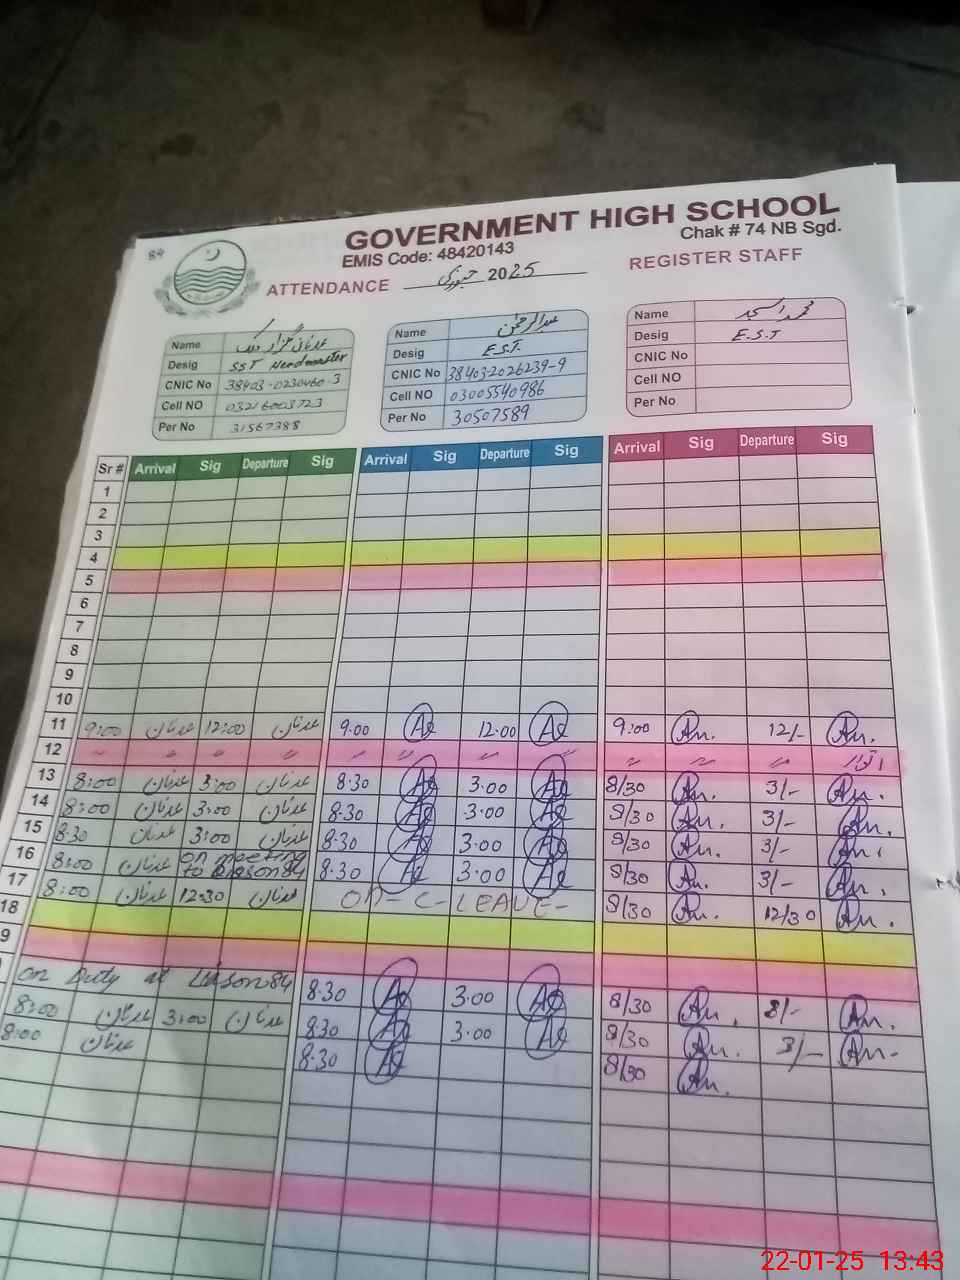 84
GOVERNMENT HIGH SCHOOL
EMIS Code: 48420143
Chak # 74 NB Sgd.
ATTENDANCE جنوری 2025
REGISTER STAFF
Name عدنان گلزار
Desig SST Headmaster
CNIC No 38403-0230460-3
Cell NO 03216003723
Per No 31567388
Name عبدالرحمٰن
Desig E.S.T.
CNIC No 38403-2026239-9
Cell NO 03005540986
Per No 30507589
Name محمد اسجد
Desig E.S.T
CNIC No
Cell NO
Per No
Sr # Arrival Sig Departure Sig Arrival Sig Departure Sig Arrival Sig Departure Sig
1
2
3
4
5
6
7
8
9
10
11 9:00 عدنان 12:00 عدنان 9.00 12.00 9:00 12/-
12 اتوار
13 8:00 عدنان 3:00 عدنان 8.30 3.00 8/30 3/-
14 8:00 عدنان 3:00 عدنان 8.30 3.00 8/30 3/-
15 8:30 عدنان 3:00 عدنان 8.30 3.00 8/30 3/-
16 8:00 عدنان on meeting to Liason 84 8.30 3.00 8/30 3/-
17 8:00 عدنان 12:30 عدنان ON - C - LEAVE - 8/30 12/30
18
9
on Duty at Liason 84 8.30 3.00 8/30 3/-
8:00 عدنان 3:00 عدنان 8.30 3.00 8/30 3/-
8:00 عدنان 8.30 8/30
22-01-25 13:43